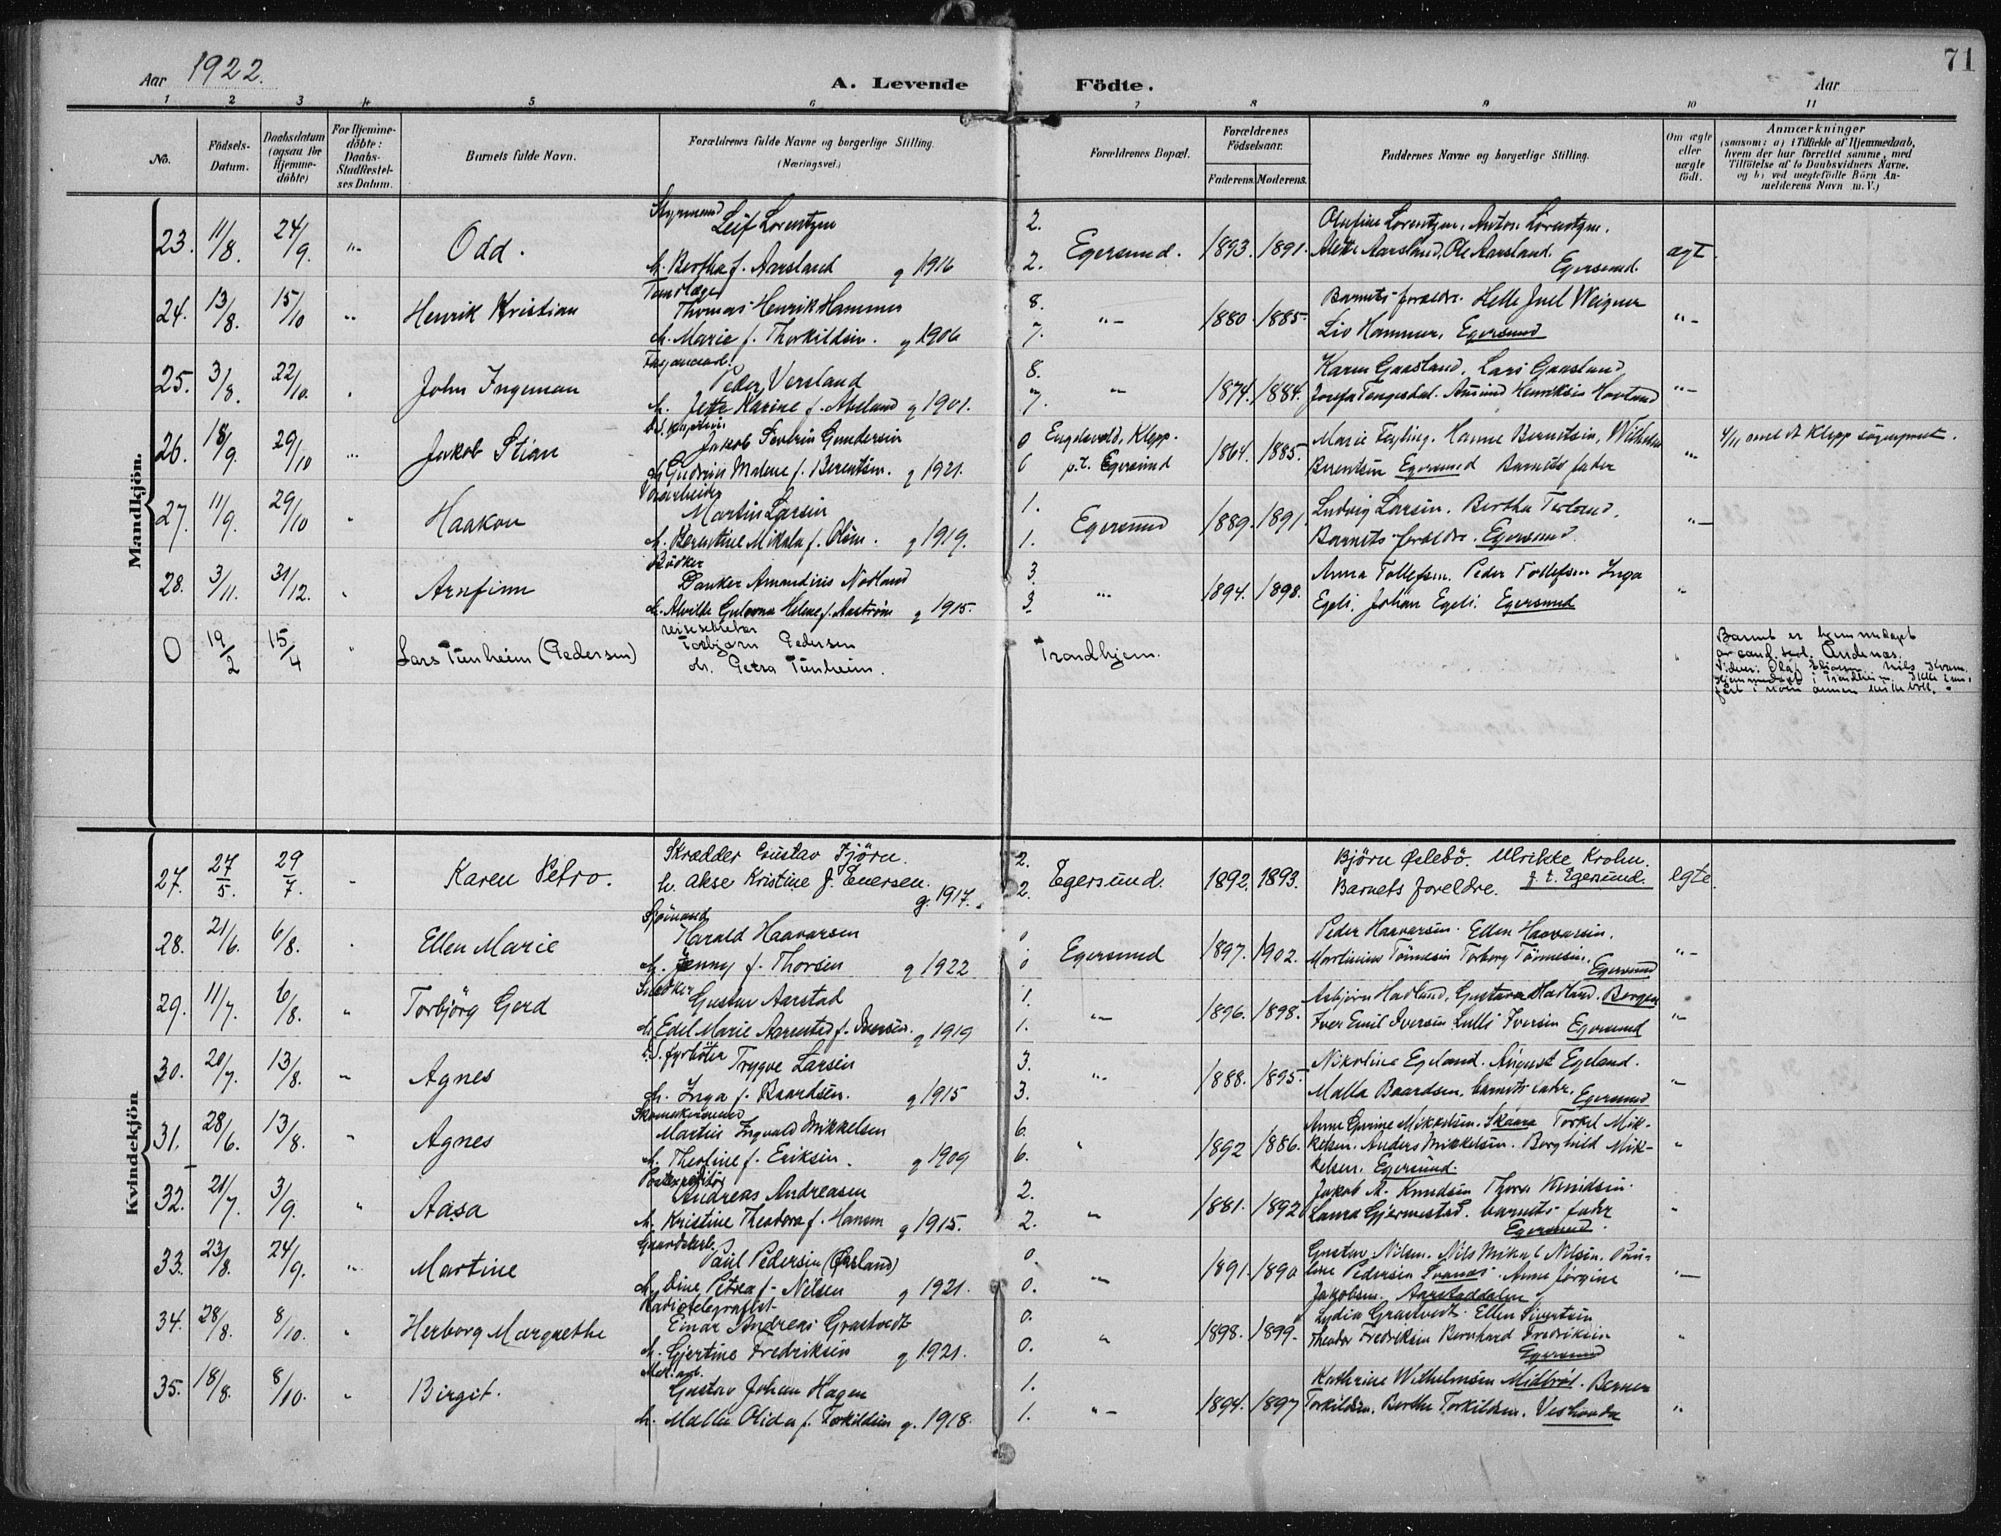 71
Aar 1922.
A. Levende Födte.
Aar
1 2 3 4 5 6 7 8 9 10 11
No.
Födsels-
Datum.
Daabsdatum
(ogsaa for
Hjemme-
döbte)
For Hjemme-
döbte:
Daabs-
Stadfæstel-
ses Datum.
Barnets fulde Navn.
Forældrenes fulde Navne og borgerlige Stilling.
(Næringsvei.)
Forældrenes Bopæl.
Forældrenes
Födselsaar.
Faderens. Moderens.
Faddernes Navne og borgerlige Stilling.
Om ægte
eller
uægte
födt.
Anmærkninger
(saasom: a) i Tilfælde af Hjemmedaab,
hvem der har forrettet samme, med
Tilföielse af to Daabsvidners Navne,
og b) ved uegtefödte Börn An-
melderens Navn m. V.)
Mandkjön.
23. 11/8. 24/9. "- Odd.
Styrmand Leif Lorentzen
h. Bertha f. Aarsland g 1916
2. 2. Egersund. 1893. 1891.
Olufine Lorentzen. Anton Lorentzen.
Alette Aarsland, Ole Aarsland.
Egersund. ægt.
24. 13/8. 15/10 Henrik Kristian
Tandlæge
Thomas Henrik Hammer
h. Marie f. Thorkildsen. g 1906
8. 7. "- 1880. 1885.
Barnets forældre. Helle Juel Weigner
Liv Hammer, Egersund "-
25. 3/8. 22/10. John Ingeman
Peder Versland
h. Jette Karine f. Aasland g 1901.
8. 7. "- 1874. 1884.
Karen Gaasland, Lars Gaasland
Josefa Tengesdal. Amund Henriksen Hovland "-
26. 18/9. 29/10 Jakob Stian
Jakob Severin Gundersen
h. Gudrun Malene f. Berentsen. g 1921.
0 0 Engelsvold, Klepp.
p.t. Egersund 1864. 1885.
Marie Feyling. Hanne Berentsen, Wilhelm
Berentsen Egersund Barnets fader
4/11 meldt Klepp sogneprest.
27. 11/9. 29/10 Haakon
Martin Larsen
h. Berentine Mikala f. Olsen. g 1919.
1. 1. Egersund 1889. 1891.
Ludvig Larsen. Bertha Terland.
Barnets forældre. Egersund. "-
28. 3/11. 31/12. Arnfinn
Bödker
Danker Amandius Nodland
h. Alvilde Gulovna Helene f. Aaström g 1915.
3. 3. "- 1894. 1898.
Anna Tollefsen. Peder Tollefsen Inga
Egeli. Johan Egeli. Egersund
0 19/2 15/4 Lars Tunheim (Pedersen)
reisesekretær
Torbjørn Pedersen
h. Petra Tunheim.
Trondhjem.
Barnet er hjemmedøpt
av cand. teol. Andenæs.
Kvindekjön
27. 27/5. 29/7. Karen Petro.
Skrædder Gustav Fjörn.
h. Akse Kristine f. Enersen.
g. 1917.
2. 2. Egersund. 1892. 1893.
Björn Øslebö. Ulrikke Krohn.
Barnets foreldre. p. t. Egersund. egte.
28. 21/6. 6/8. Ellen Marie
Sjömand
Harald Haavarsen
h. Jenny f. Thorsen g 1922
0 0 Egersund 1897. 1902.
Peder Haavarsen. Ellen Haavarsen.
Martinius Tönnesen Torborg Tönnesen.
Egersund "-
29. 11/7. 6/8. Torbjörg Gerd
Snedker
Gustav Aarstad
h. Edel Marie Aarrestad f. Iversen. g 1919
1. 1. "- 1896. 1898.
Asbjörn Hadland, Gustava Hadland, Bergen
Iver Emil Iversen Lulli Iversen Egersund
30. 20/7. 13/8. Agnes
D.S. fyrböter Trygve Larsen
h. Inga f. Baardsen. g 1915
3. 3. "- 1888. 1895.
Nikoline Egeland. August Egeland.
Malla Baardsen, barnets fader. Egersund
31. 28/6. 13/8. Agnes
Martin Ingvald Mikkelsen
h. Theoline f. Eriksen. g 1909
6. 6. " 1892 1886.
Anne Gurine Mikkelsen. Skaara Torkel Mik-
kelsen. Anders Mikkelsen. Borghild Mik-
kelsen. Egersund.
32. 21/7. 3/9. Aasa
Postexpeditör
Andreas Andreasen
h. Kristine Theodora f. Hansen g 1915.
2. 2. " 1881. 1892
Jakob M. Knudsen Thora Knudsen.
Laura Gjermestad. barnets fader
Egersund.
33. 23/8. 24/9. Martine
Gaardarb.
Paul Pedersen (Ørsland)
h. Dine Petrea f. Nilsen g 1921.
0. 0. "- 1891. 1890
Gustav Nilsen. Nils Mikal Nilsen. Pau-
line Pedersen Svanes. Anne Jörgine
Jakobsen. Aarstaddalen
34. 28/8. 8/10. Herborg Margrethe
Radiotelegrafist
Einar Andreas Grastvedt
h. Gjertine Fredriksen g 1921.
0. 0. " 1898. 1899.
Lydia Grastvedt. Ellen Sivertsen
Theodor Fredriksen Bernhard Fredriksen
Egersund
35. 18/8. 8/10. Birgit.
Mek. arb.
Gustav Johan Hagen
h. Mallie Olida f. Torkildsen g. 1918.
1. 1. "- 1894. 1897
Kathrine Wilhelmsen Midbröt. Berner
Torkildsen. Berthe Torkildsen.